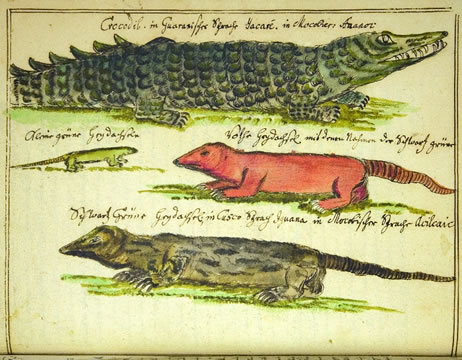 Crocodil. in Guaranischer Sprache Jacaré. in Mocobier Anaaoc
Kleine grüne Heydächseln
Rothe Heydächsel mit denen Nahmen der Schwartz grüne
Schwartz Grüne Heydächsel, in Sprach Iguana in Mocobischer Sprache